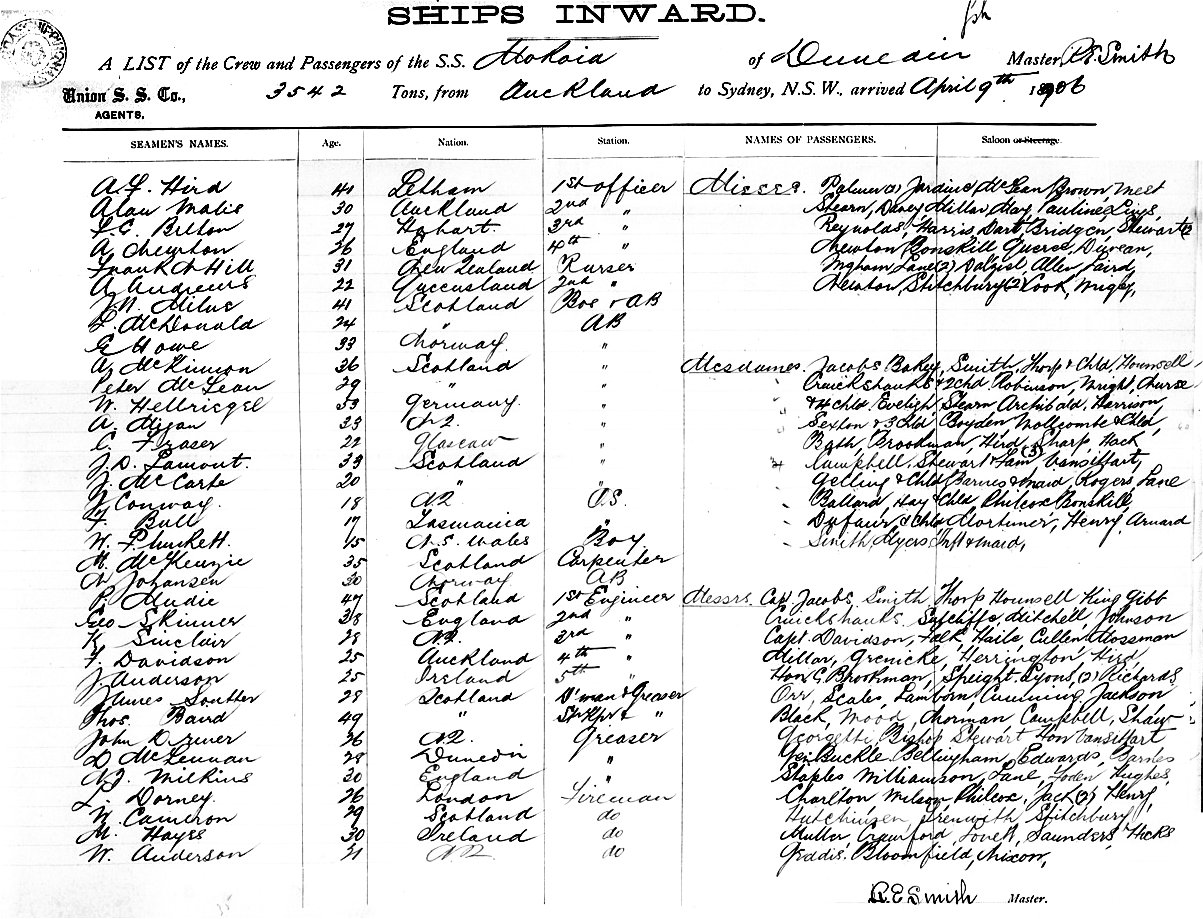 SHIPS INWARD.
A LIST of the Crew and Passengers of the S.S. Mokoia of Dunedin Master, R.E. Smith
Union S. S. Co., 3542 Tons, from Auckland to Sydney, N.S.W., arrived April 9th 1906
AGENTS.
SEAMEN'S NAMES. Age. Nation. Station. NAMES OF PASSENGERS. Saloon or Steerage.
A. F. Hird 41 Letham 1st Officer Misses. Palmer Jardine McLean Brown, West
Alan 30 Auckland 2nd " Stearn, Davey Millar May, Pauline
27 Hobart 3rd " Reynolds, Harris, Dart, Bridgen, Stewart
A. Newton 26 England 4th " Newton Bonskill Duncan,
Frank W Hill 31 New Zealand Purser Ingham Lane (2) Dalgist, Allen Laird,
A Andrews 22 Queensland 2nd " Newton, Stitchbury (2) Cook,
J. N. Milne 41 Scotland Bos & AB
McDonald 24 " AB
E Howe 33 Norway. "
A. McKinnon 36 Scotland " Mesdames. Jacobs, Smith, Thorp & Chld, Hounsell
Peter McLean 29 " " Cruickshanks & 2 chd Robinson, Wright, Nurse
W. Hellriegel 53 Germany. " & 4 chld Stearn Archibald, Harrison,
A. 33 NZ. " Sexton & 3 Chld Boyden & Chld,
C Fraser 22 Glascow " Bath, Brookman, Hird, Sharp, Hack
J. D. Lamont. 33 Scotland " Campbell, Stewart & Fam (3) Vansittart,
J. McCarte 20 " " Gelling & Chld Barnes & maid, Rogers Lane
J Conway. 18 NZ O.S. Ballard, Hay & Chld Philcox Bonskill,
F. Bull 17 Tasmania " Dufaur, & Chld Mortimer, Henry,
W. Pluckett. 15 N.S. Wales Boy Smith, Myers Inft & maid,
M. McKenzie 35 Scotland Carpenter
N Johansen 30 Norway AB
P. Mudie 47 Scotland 1st Engineer Messrs. Capt. Jacobs, Smith Thorp Hounsell King Gibb
Geo Skinner 38 England 2nd " Cruickshanks, Sutcliffe, Mitchell, Johnson
K. Sinclair 28 NZ. 3rd " Capt. Davidson, Falk, Haile, Cullen Mossman
F. Davidson 25 Auckland 4th " Millar, Grenicke, Herrington, Hird,
J. Anderson 25 Ireland 5th " Hon G. Brookman, Speight Lyons, (2) Richards
James Souther 28 Scotland & Greaser Orr, Scales, Lamborn, Cumming Jackson
Thos. Baud 49 " " Black, Wood, Norman Campbell, Shaw
John D. 36 NZ. Greaser Georgetti, Bishop Stewart Hon Vansittart
D McLennan 28 Dunedin " Buckle Bellingham, Edwards, Barnes
N. J. Wilkins 30 England " Staples Williamson, Lane, Foden Hughes,
L. Dorney. 26 London Fireman Charlton, Wilson Philcox, Jack (3) Henry,
W. Cameron 29 Scotland do Hutchinson, Trenwith Stitchbury
M. Hayes 30 Ireland do Muller, Crawford, Lovell, Saunders, Hicks
W. Anderson 21 NZ do Geddis. Bloomfield, Nixon,
R.E. Smith Master.